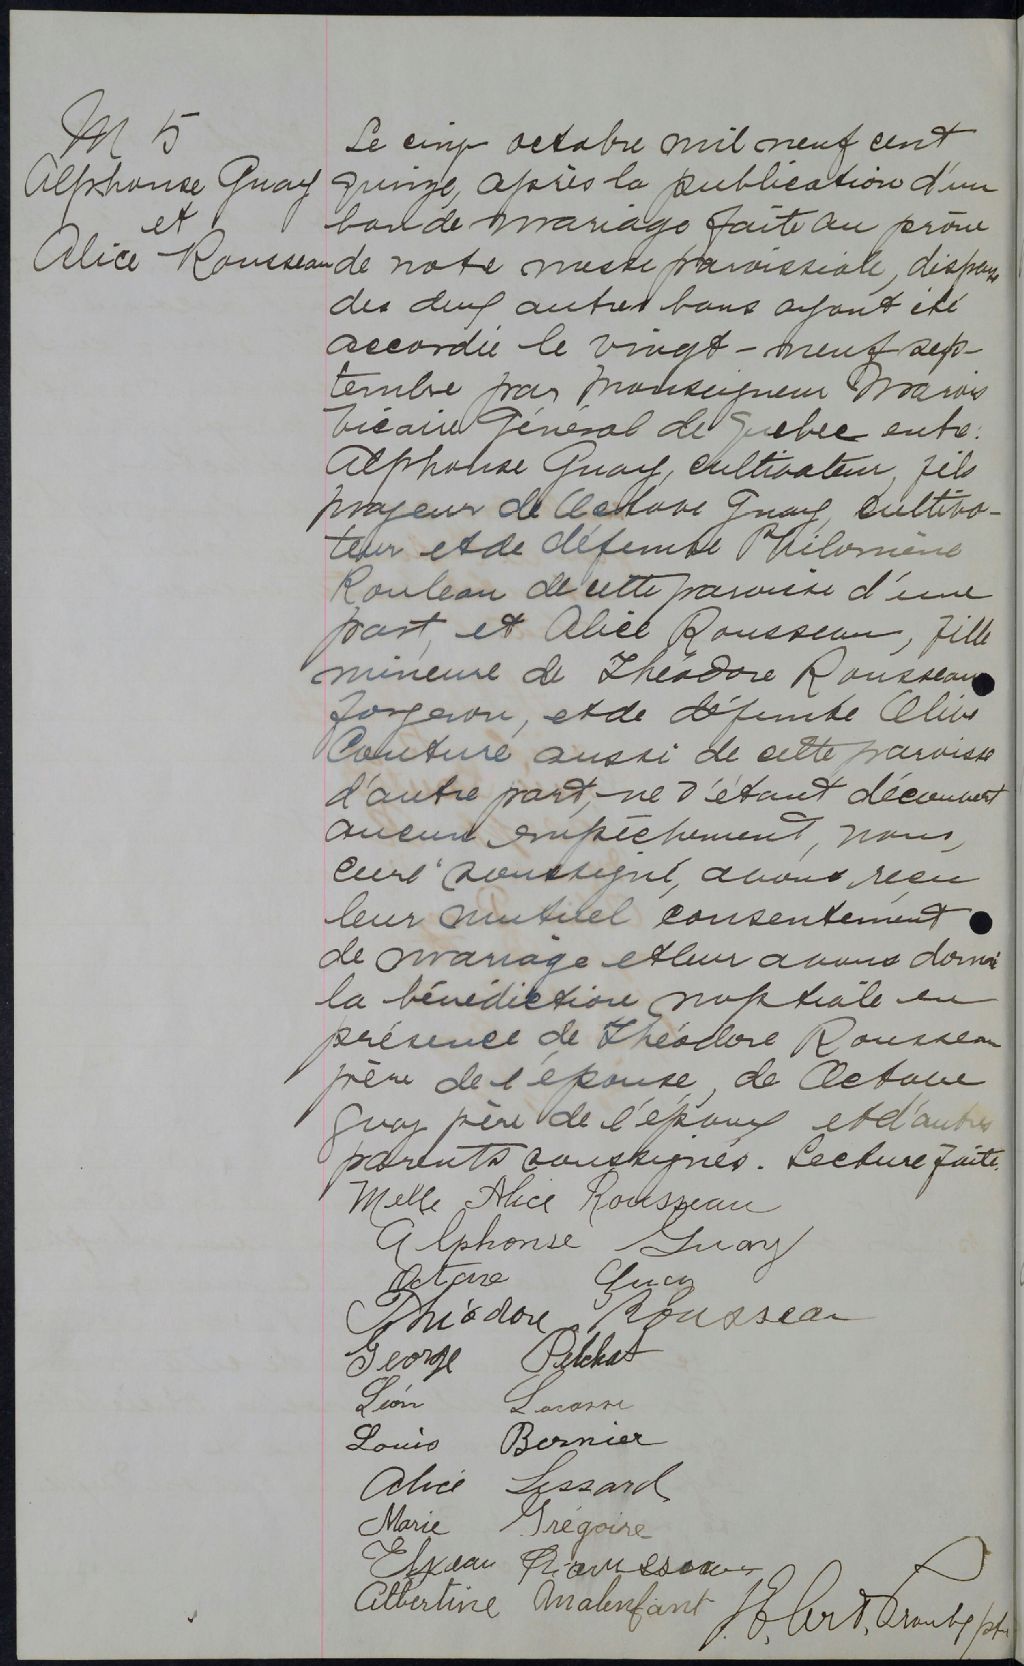 M 5
Alphonse Guay
et
Alice Rousseau
Le cinq octobre mil neuf cent
quinze, après la publication d'un
ban de mariage faite au prône
de notre messe paroissiale, dispense
des deux autres bans ayant été
accordée le vingt-neuf sep-
tembre par Monseigneur Marois
Vicaire Général de Quebec entre:
Alphonse Guay, cultivateur, fils
majeur de Octave Guay, cultiva-
teur et de défunte Philomène
Rouleau de cette paroisse d'une
part, et Alice Rousseau, fille
mineure de Théodore Rousseau
forgeron, et de défunte Olive
Couture aussi de cette paroisse
d'autre part, ne s'étant découvert
aucun empêchement, nous,
curé soussigné, avons reçu
leur mutuel consentement
de mariage et leur avons donné
la bénédiction nuptiale en
présence de Théodore Rousseau
père de l'épouse, de Octave
Guay père de l'époux et d'autres
parents soussignés. Lecture faite.
Melle Alice Rousseau
Alphonse Guay
Octave Guay
Théodore Rousseau
George Pelchat
Léon Lacasse
Louis Bernier
Alice Lessard
Marie Grégoire
Elzear Rousseau
Albertine Malenfant
J. E. ptre